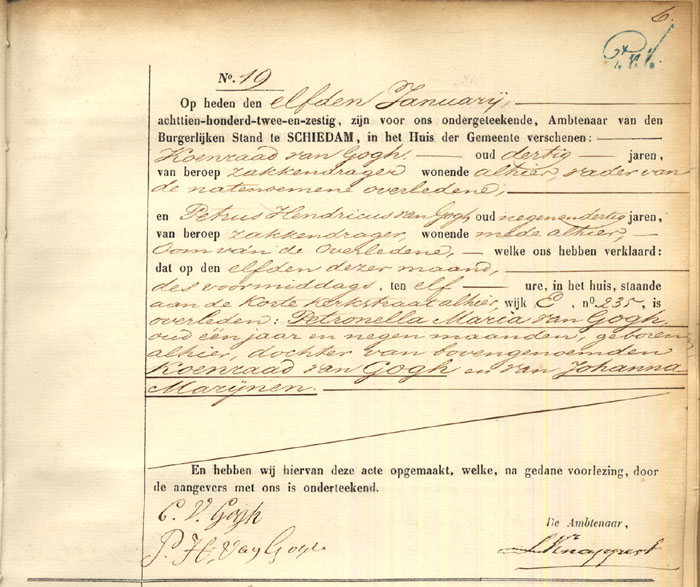 6.
No. 19
Op heden den elfden Januarij,
achttien-honderd-twee-en-zestig, zijn voor ons ondergeteekende, Ambtenaar van den
Burgerlijken Stand te SCHIEDAM, in het Huis der Gemeente verschenen:
Koenraad van Gogh. oud dertig jaren,
van beroep zakkendrager wonende alhier, vader van
de natenoemene overledene,
en Petrus Hendricus van Gogh oud negenendertig jaren,
van beroep zakkendrager, wonende mede alhier,
Oom van de Overledene, welke ons hebben verklaard:
dat op den elfden dezer maand,
des voormiddags, ten elf ure, in het huis, staande
aan de Korte Kerkstraat alhier, wijk E, no. 235, is
overleden: Petronella Maria van Gogh
oud één jaar en negen maanden, geboren
alhier, dochter van bovengenoemden
Koenraad van Gogh en van Johanna
Marijnen.
En hebben wij hiervan deze acte opgemaakt, welke, na gedane voorlezing, door
de aangevers met ons is onderteekend.
C. V. Gogh
De Ambtenaar,
P. H. Van Gogh
Knappert